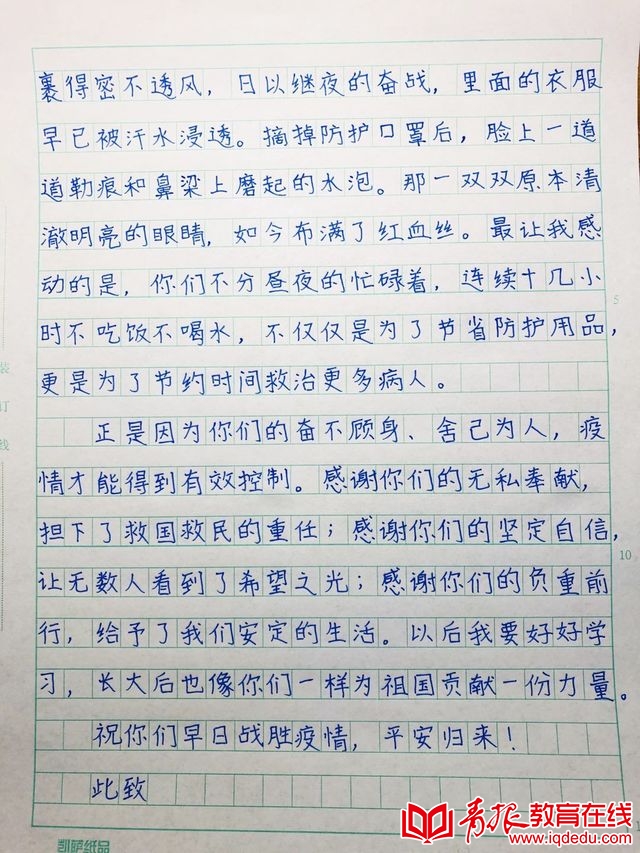 裹得密不透风，日以继夜的奋战，里面的衣服
早已被汗水浸透。摘掉防护口罩后，脸上一道
道勒痕和鼻梁上磨起的水泡。那一双双原本清
澈明亮的眼睛，如今布满了红血丝。最让我感
动的是，你们不分昼夜的忙碌着，连续十几小
时不吃饭不喝水，不仅仅是为了节省防护用品，
更是为了节约时间救治更多病人。
正是因为你们的奋不顾身、舍己为人，疫
情才能得到有效控制。感谢你们的无私奉献，
担下了救国救民的重任；感谢你们的坚定自信，
让无数人看到了希望之光；感谢你们的负重前
行，给予了我们安定的生活。以后我要好好学
习，长大后也像你们一样为祖国贡献一份力量。
祝你们早日战胜疫情，平安归来！
此致
5
10
装
订
线
凯萨纸品
青报教育在线
www.iqdedu.com